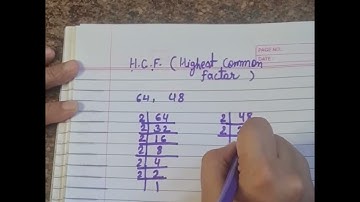 PAGE NO.
DATE
H.C.F. (Highest Common
Factor)
64, 48
2 64
2 32
2 16
2 8
2 4
2 2
1
2 48
2